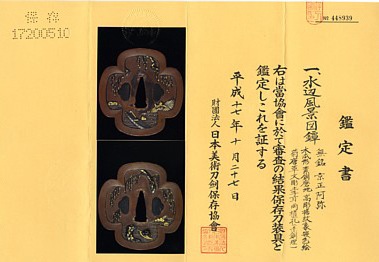 保存
17200510
NO 448939
鑑定書
一、水辺風景図鐔
無銘 宗正阿弥
右は當協會に於て審査の結果保存刀装具と
鑑定しこれを証する
平成十七年十月二十七日
財團法人日本美術刀劍保存協會